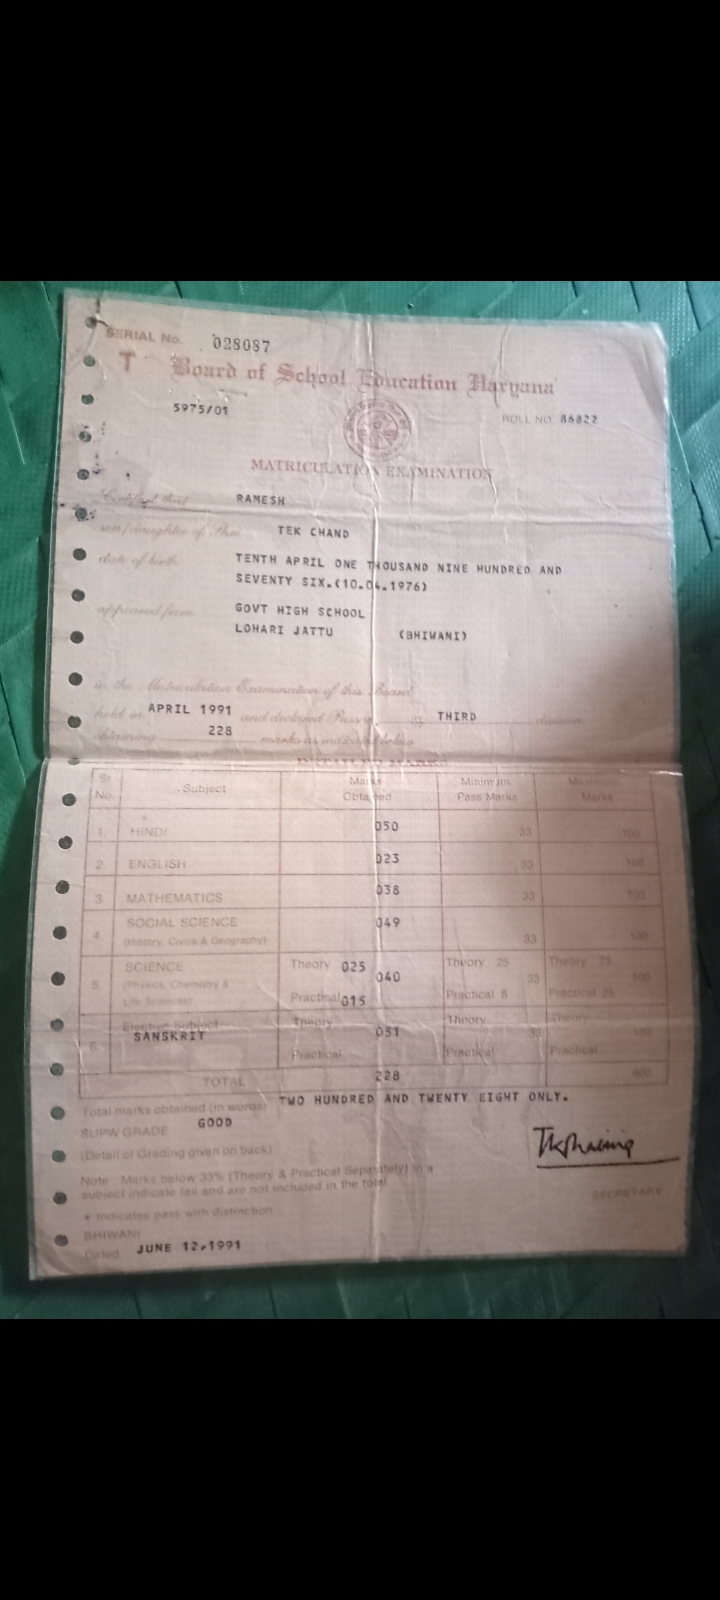 SERIAL No. 028087
T Board of School Education Haryana
5975/01
ROLL NO. 86822
MATRICULATION EXAMINATION
Certified that RAMESH
son/daughter of Shri TEK CHAND
date of birth TENTH APRIL ONE THOUSAND NINE HUNDRED AND
SEVENTY SIX.(10.04.1976)
appeared from GOVT HIGH SCHOOL
LOHARI JATTU (BHIWANI)
in the Matriculation Examination of this Board
held in APRIL 1991 and declared Passed in THIRD division
obtaining 228 marks as indicated below
DETAILED MARKS
Sr. No. Subject Marks Obtained Minimum Pass Marks Maximum Marks
1. HINDI 050 33 100
2. ENGLISH 023 33 100
3. MATHEMATICS 038 33 100
4. SOCIAL SCIENCE 049
(History, Civics & Geography) 33 100
5. SCIENCE Theory 025 Theory 25 Theory 75
(Physics, Chemistry & 040 33 100
Life Sciences) Practical 015 Practical 8 Practical 25
Elective Subject Theory Theory Theory
6. SANSKRIT 051 33 100
Practical Practical Practical
TOTAL 228 600
Total marks obtained (in words) TWO HUNDRED AND TWENTY EIGHT ONLY.
SUPW GRADE GOOD
(Detail of Grading given on back)
Note : Marks below 33% (Theory & Practical Separately) in a
subject indicate fail and are not included in the total
* Indicates pass with distinction
SECRETARY
BHIWANI
Dated JUNE 12,1991